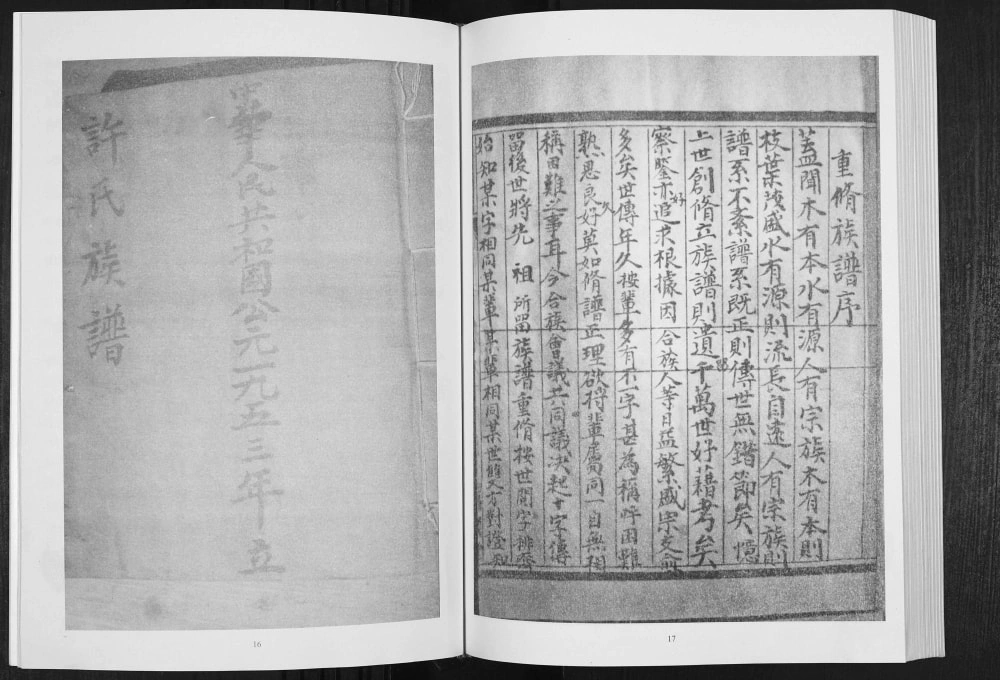 中華人民共和國公元一九五三年 立
許氏族譜
16
重脩族譜序
蓋聞木有本水有源人有宗族木有本則
枝葉茂盛水有源則流長自遠人有宗族則
譜系不紊譜系既正則傳世無錯節矣憶
上世創脩立族譜則遺千萬世好藉考矣
察鑒亦好追求根據因合族人等日益繁盛宗支
多矣世傳年久按輩多有不一字甚為稱呼困難
熟思良久好莫如脩譜正理欲將輩 同一目無
稱困難之事耳今合族會議共同議決起十字傳
留後世將先 祖 所留族譜重脩按世閱字排
始知某字相同某輩某輩相同某世 方對證
17